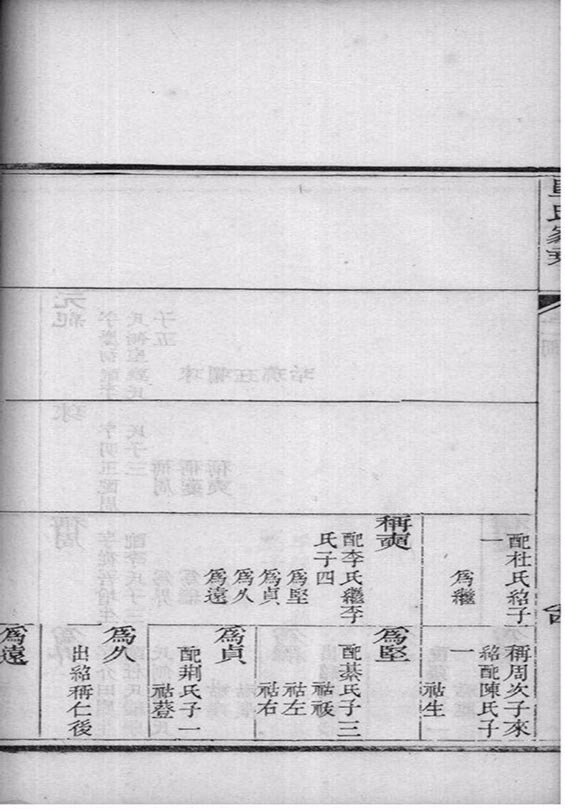 配杜氏紹子
一
爲繼
稱奭
配李氏繼李
氏子四
爲堅
爲貞
爲久
爲遠
稱周次子來
紹配陳氏子
一
祜生
爲堅
配綦氏子三
祜
祜左
祜右
爲貞
配荆氏子一
祜
爲久
出紹稱仁後
爲遠